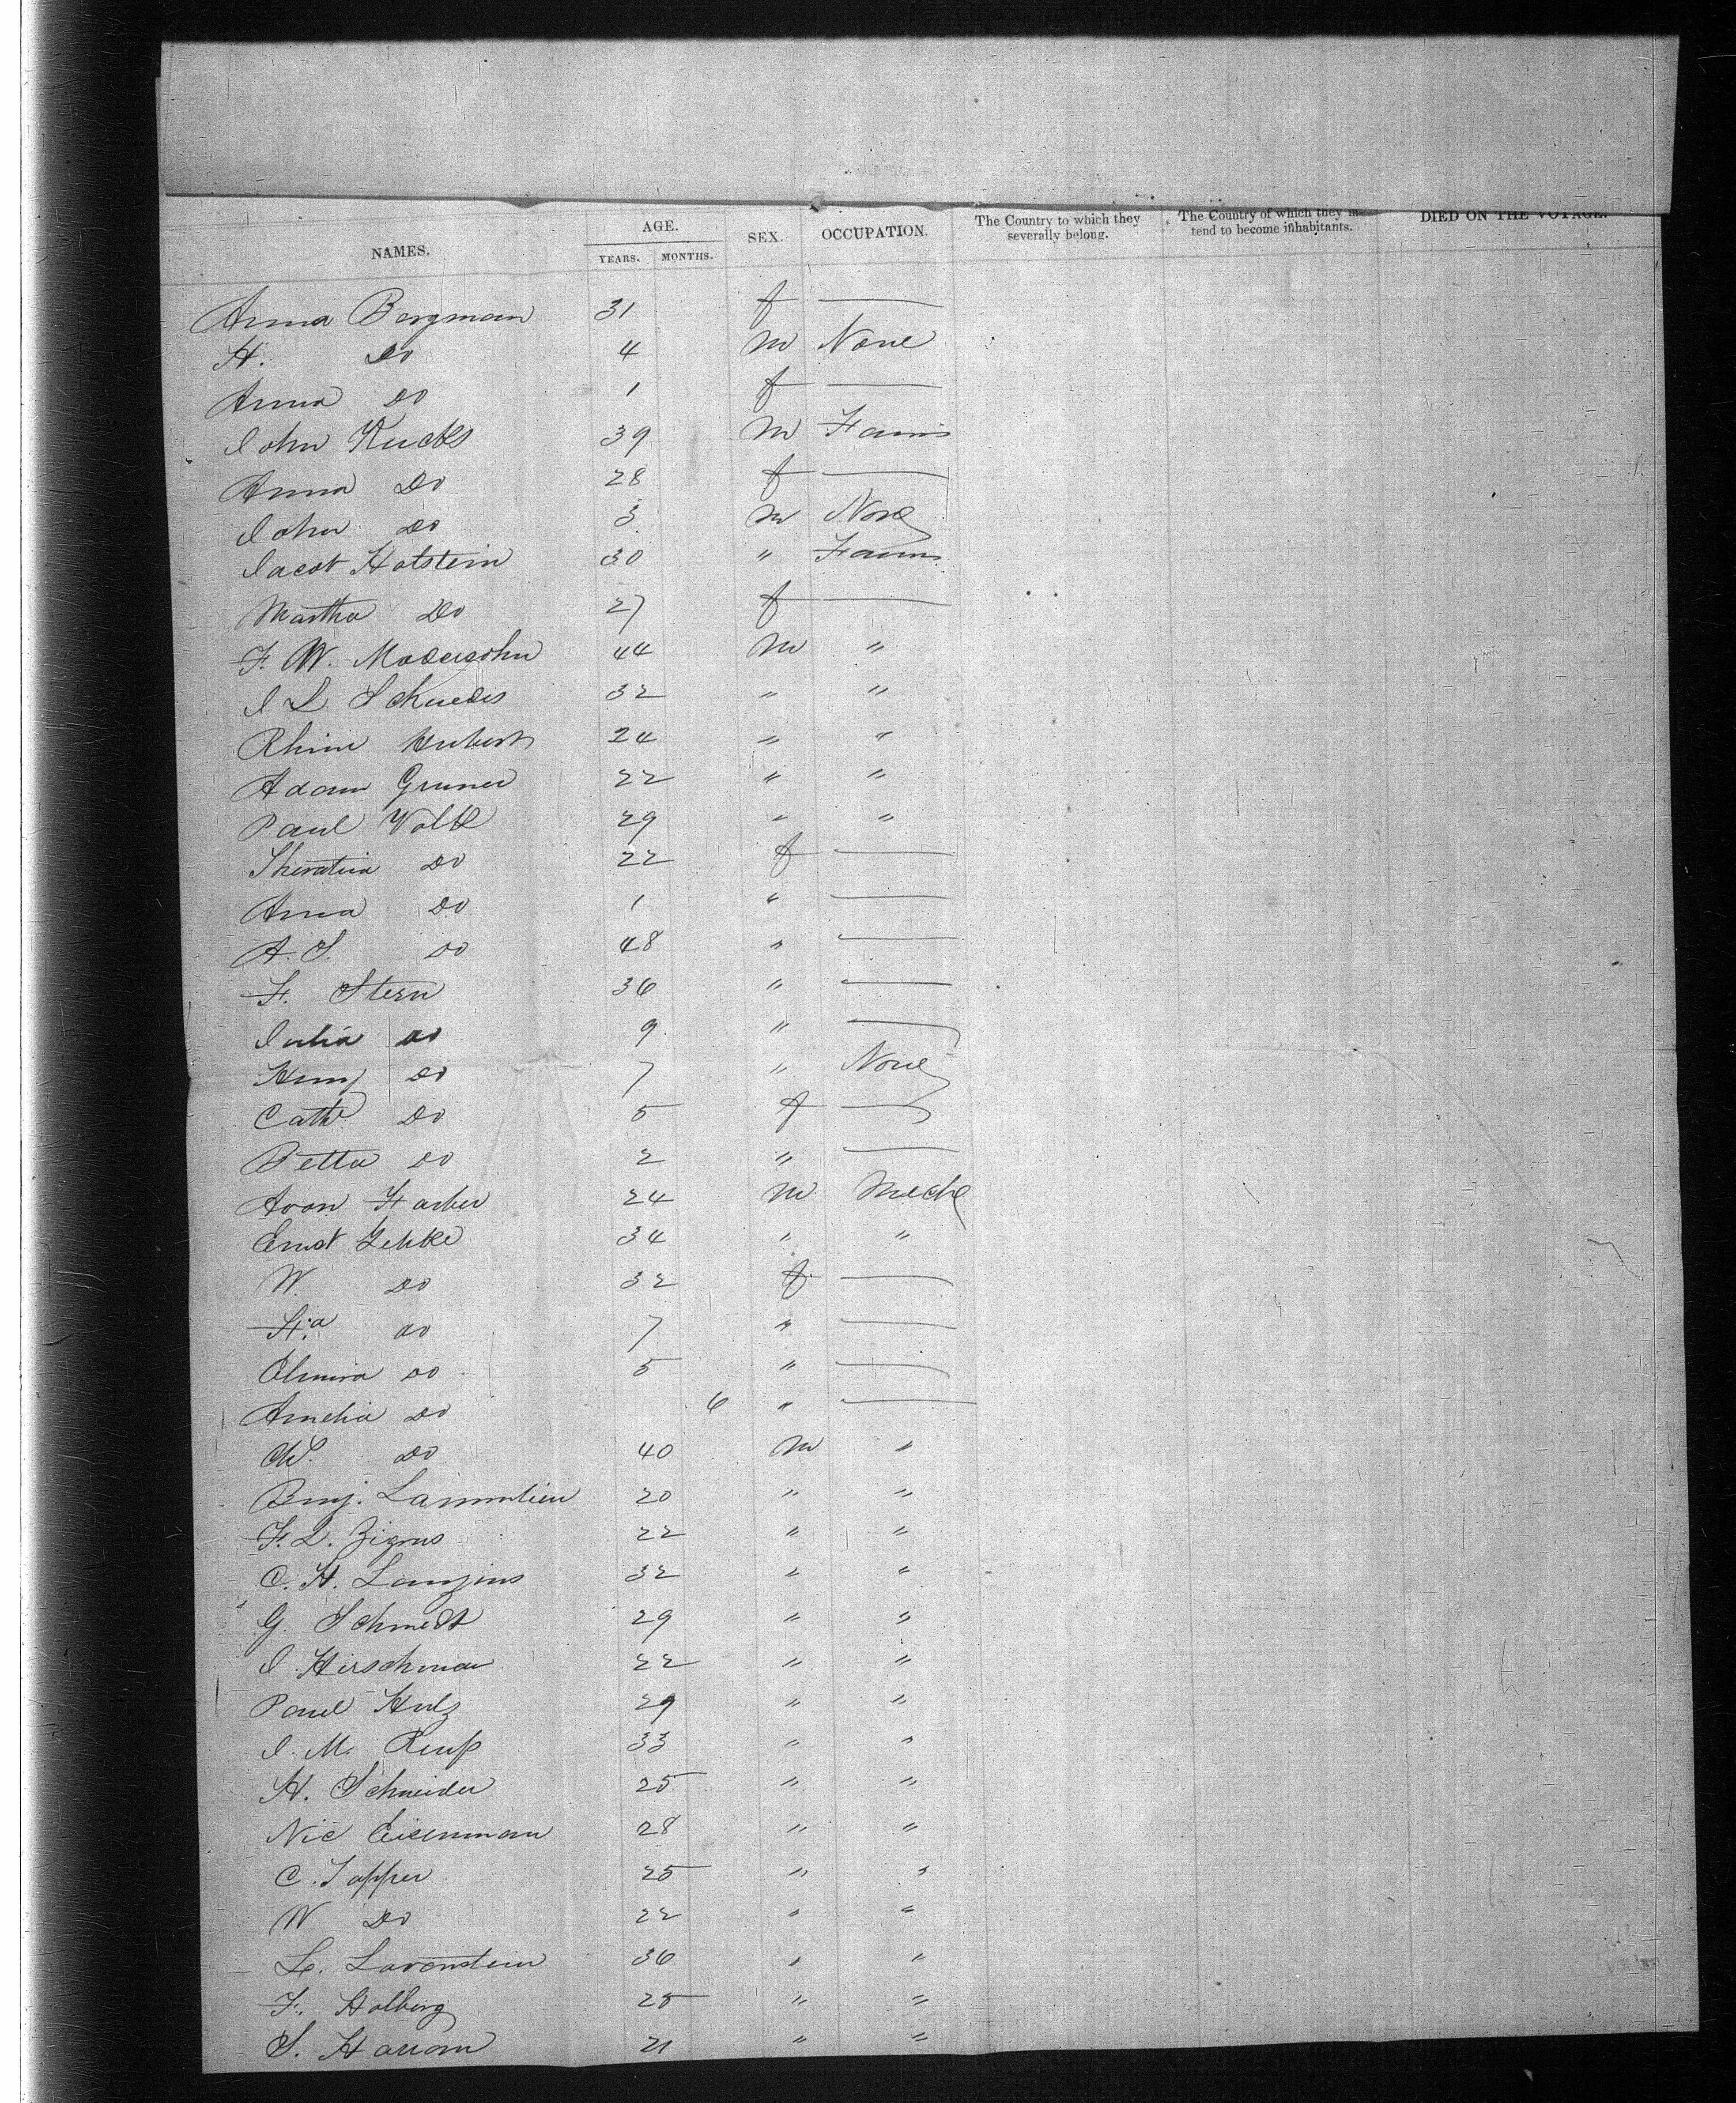 NAMES. AGE. YEARS. MONTHS. SEX. OCCUPATION. The Country to which they severally belong. The Country of which they in- tend to become inhabitants. DIED ON THE VOYAGE.
Anna Bergman 31 f —
H. Do 4 m None
Anna Do 1 f —
John Kucks 39 m Farmr
Anna Do 28 f —
John Do 3 m None
Jacob Hotstein 30 " Farmr
Martha Do 27 f —
F. W. Modersohn 44 m "
J L. Schueder 32 " "
Rhine Hubert 24 " "
Adam Gruner 22 " "
Paul Volk 29 " "
Do 22 f —
Anna Do 1 " —
A. S. Do 48 " —
F. Stern 36 " —
Julia Do 9 " —
Henry Do 7 " None
Cath. Do 5 f —
Betta Do 2 " —
Aron Farber 24 m Mech
Ernst Lehke 34 " "
W. Do 32 f —
Do 7 " —
Elmira Do 5 " —
Amelia Do 6 " —
Do 40 m "
Benj. 20 " "
F. L. Zigrus 22 " "
C. H. Langins 32 " "
G. Schmidt 29 " "
J. Hirschman 22 " "
Paul Hulz 29 " "
J. M. Reuß 33 " "
H. Schneider 25 " "
Nic Eisenman 28 " "
C. Topper 25 " "
W Do 22 " "
Le. Lavenstein 36 " "
F. Holberg 25 " "
S. Harrom 21 " "